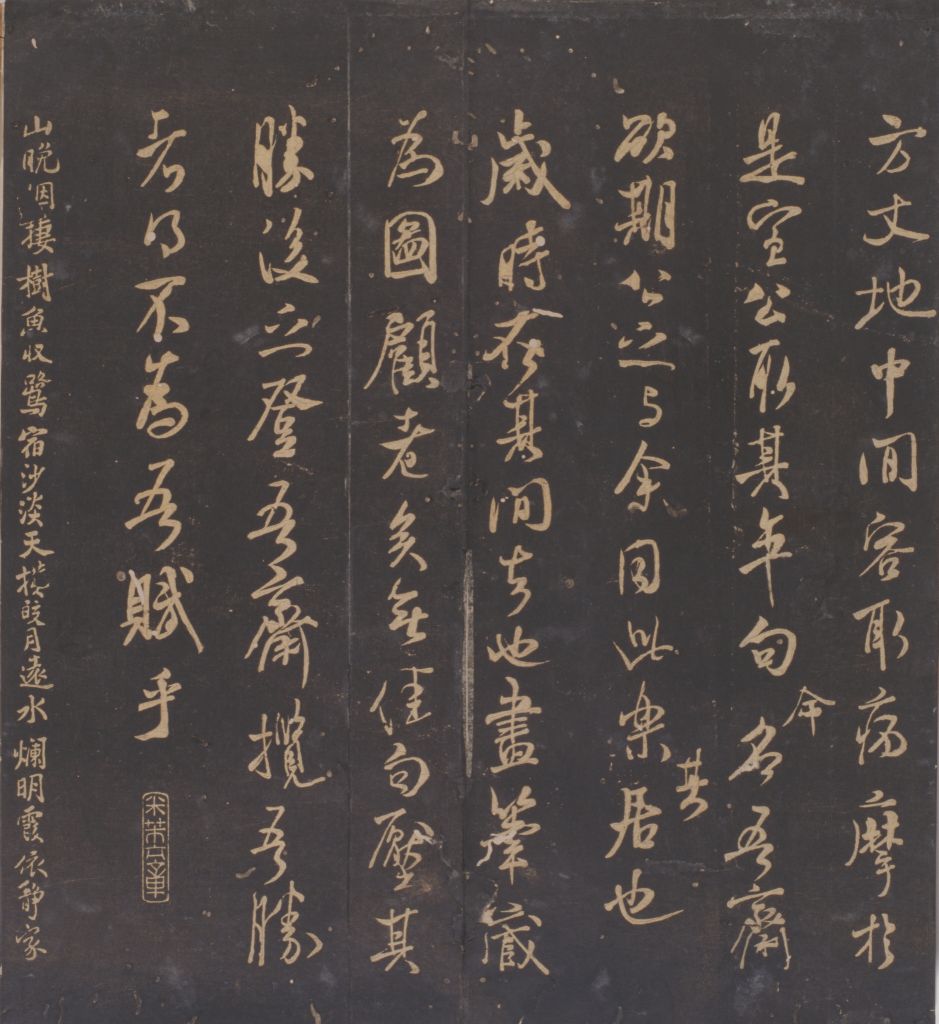 方丈地中間容取病摩於
是宣公取其卒句命名吾齋
欲期公之与余同此樂其居也
歲時在其間去也畫筆藏
為圖顧老矣無佳句壓其
勝後之登吾齋攬吾勝
者得不為吾賦乎
米芾元章
山晚烟棲樹魚收鷺宿沙淡天攙皎月遠水爛明霞依靜家